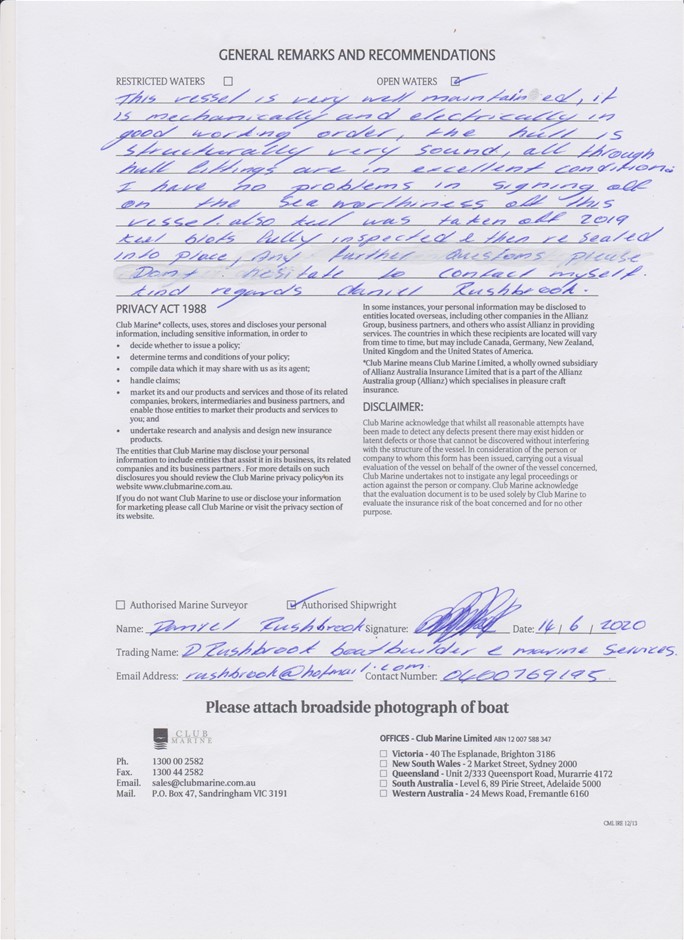 GENERAL REMARKS AND RECOMMENDATIONS
RESTRICTED WATERS ☐ OPEN WATERS ☑
This vessel is very well maintained, it
is mechanically and electrically in
good working order, the hull is
structurally very sound, all through
hull fittings are in excellent condition.
I have no problems in signing off
on the sea worthiness off this
vessel. also keel was taken off 2019
keel blots fully inspected & then re sealed
into place, Any further Questions please
Dont hesitate to contact myself.
kind regards Daniel Rushbrook.
PRIVACY ACT 1988
Club Marine* collects, uses, stores and discloses your personal
information, including sensitive information, in order to
• decide whether to issue a policy;
• determine terms and conditions of your policy;
• compile data which it may share with us as its agent;
• handle claims;
• market its and our products and services and those of its related
companies, brokers, intermediaries and business partners, and
enable those entities to market their products and services to
you; and
• undertake research and analysis and design new insurance
products.
The entities that Club Marine may disclose your personal
information to include entities that assist it in its business, its related
companies and its business partners . For more details on such
disclosures you should review the Club Marine privacy policy on its
website www.clubmarine.com.au.
If you do not want Club Marine to use or disclose your information
for marketing please call Club Marine or visit the privacy section of
its website.
In some instances, your personal information may be disclosed to
entities located overseas, including other companies in the Allianz
Group, business partners, and others who assist Allianz in providing
services. The countries in which these recipients are located will vary
from time to time, but may include Canada, Germany, New Zealand,
United Kingdom and the United States of America.
*Club Marine means Club Marine Limited, a wholly owned subsidiary
of Allianz Australia Insurance Limited that is a part of the Allianz
Australia group (Allianz) which specialises in pleasure craft
insurance.
DISCLAIMER:
Club Marine acknowledge that whilst all reasonable attempts have
been made to detect any defects present there may exist hidden or
latent defects or those that cannot be discovered without interfering
with the structure of the vessel. In consideration of the person or
company to whom this form has been issued, carrying out a visual
evaluation of the vessel on behalf of the owner of the vessel concerned,
Club Marine undertakes not to instigate any legal proceedings or
action against the person or company. Club Marine acknowledge
that the evaluation document is to be used solely by Club Marine to
evaluate the insurance risk of the boat concerned and for no other
purpose.
☐ Authorised Marine Surveyor ☑ Authorised Shipwright
Name: Daniel Rushbrook Signature: Date: 14 / 6 / 2020
Trading Name: D Rushbrook boatbuilder & marine Services.
Email Address: rushbrook@hotmail.com. Contact Number: 0400769195
Please attach broadside photograph of boat
CLUB
MARINE
Ph. 1300 00 2582
Fax. 1300 44 2582
Email. sales@clubmarine.com.au
Mail. P.O. Box 47, Sandringham VIC 3191
OFFICES - Club Marine Limited ABN 12 007 588 347
☐ Victoria - 40 The Esplanade, Brighton 3186
☐ New South Wales - 2 Market Street, Sydney 2000
☐ Queensland - Unit 2/333 Queensport Road, Murarrie 4172
☐ South Australia - Level 6, 89 Pirie Street, Adelaide 5000
☐ Western Australia - 24 Mews Road, Fremantle 6160